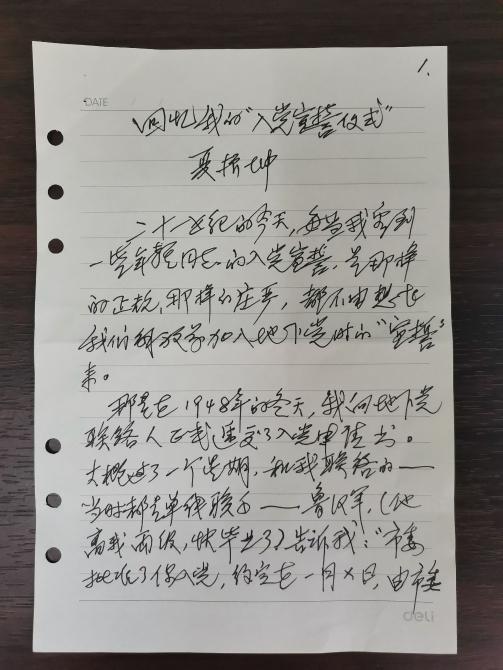 1.
DATE
回忆我的“入党宣誓仪式”
夏振坤
二十一世纪的今天，每当我看到
一些年轻同志的入党宣誓，是那样
的正规，那样的庄严，都不由想起
我们解放前加入地下党时的“宣誓”
来。
那是在1948年的冬天，我向地下党
联络人正式递交了入党申请书。
大概过了一个星期，和我联络的——
当时都是单线联系——鲁汉军，（他
高我两级，快毕业了）告诉我：“市委
批准了你入党，约定在一月X日，由市委
deli